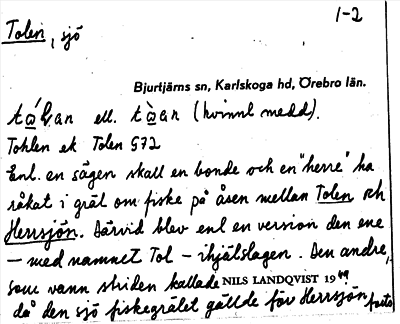 1-2
Tolen, sjö
Bjurtjärns sn, Karlskoga hd, Örebro län.
ell. (kvinnl medd).
Tohlen ek Tolen G72
Enl. en sägen skall en bonde och en "herre" ha
råkat i gräl om fiske på åsen mellan Tolen och
Herrsjön. Därvid blev enl en version den ene
– med namnet Tol – ihjälslagen. Den andre,
som vann striden kallade NILS LANDQVIST 1949
då den sjö fiskegrälet gällde för Herrsjön